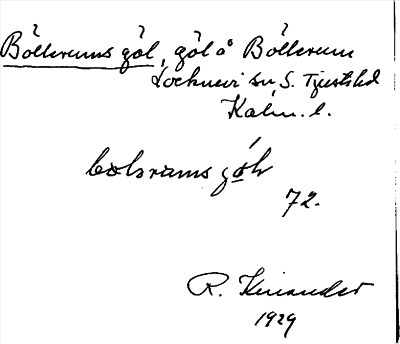 Böllerums göl, göl å Böllerum
Locknevi sn, S. Tjusts hd
Kalm. l.
göl
72.
R. Kinander
1929